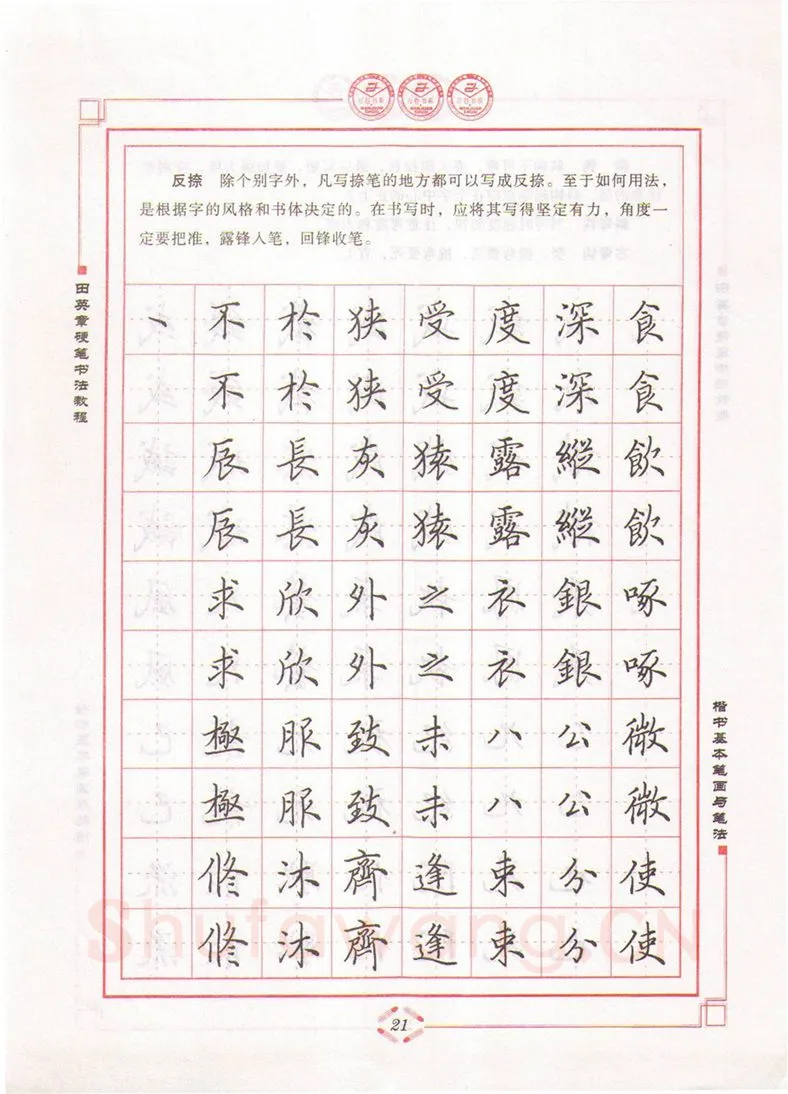 反捺 除个别字外，凡写捺笔的地方都可以写成反捺。至于如何用法，
是根据字的风格和书体决定的。在书写时，应将其写得坚定有力，角度一
定要把准，露锋入笔，回锋收笔。
田英章硬笔书法教程
丶不於狭受度深食
不於狭受度深食
辰長灰猿露縱飲
辰長灰猿露縱飲
求欣外之衣銀啄
求欣外之衣銀啄
極服致未八公微
極服致未八公微
修沐齊逢束分使
修沐齊逢束分使
楷书基本笔画与笔法
Shufawang.CN
21